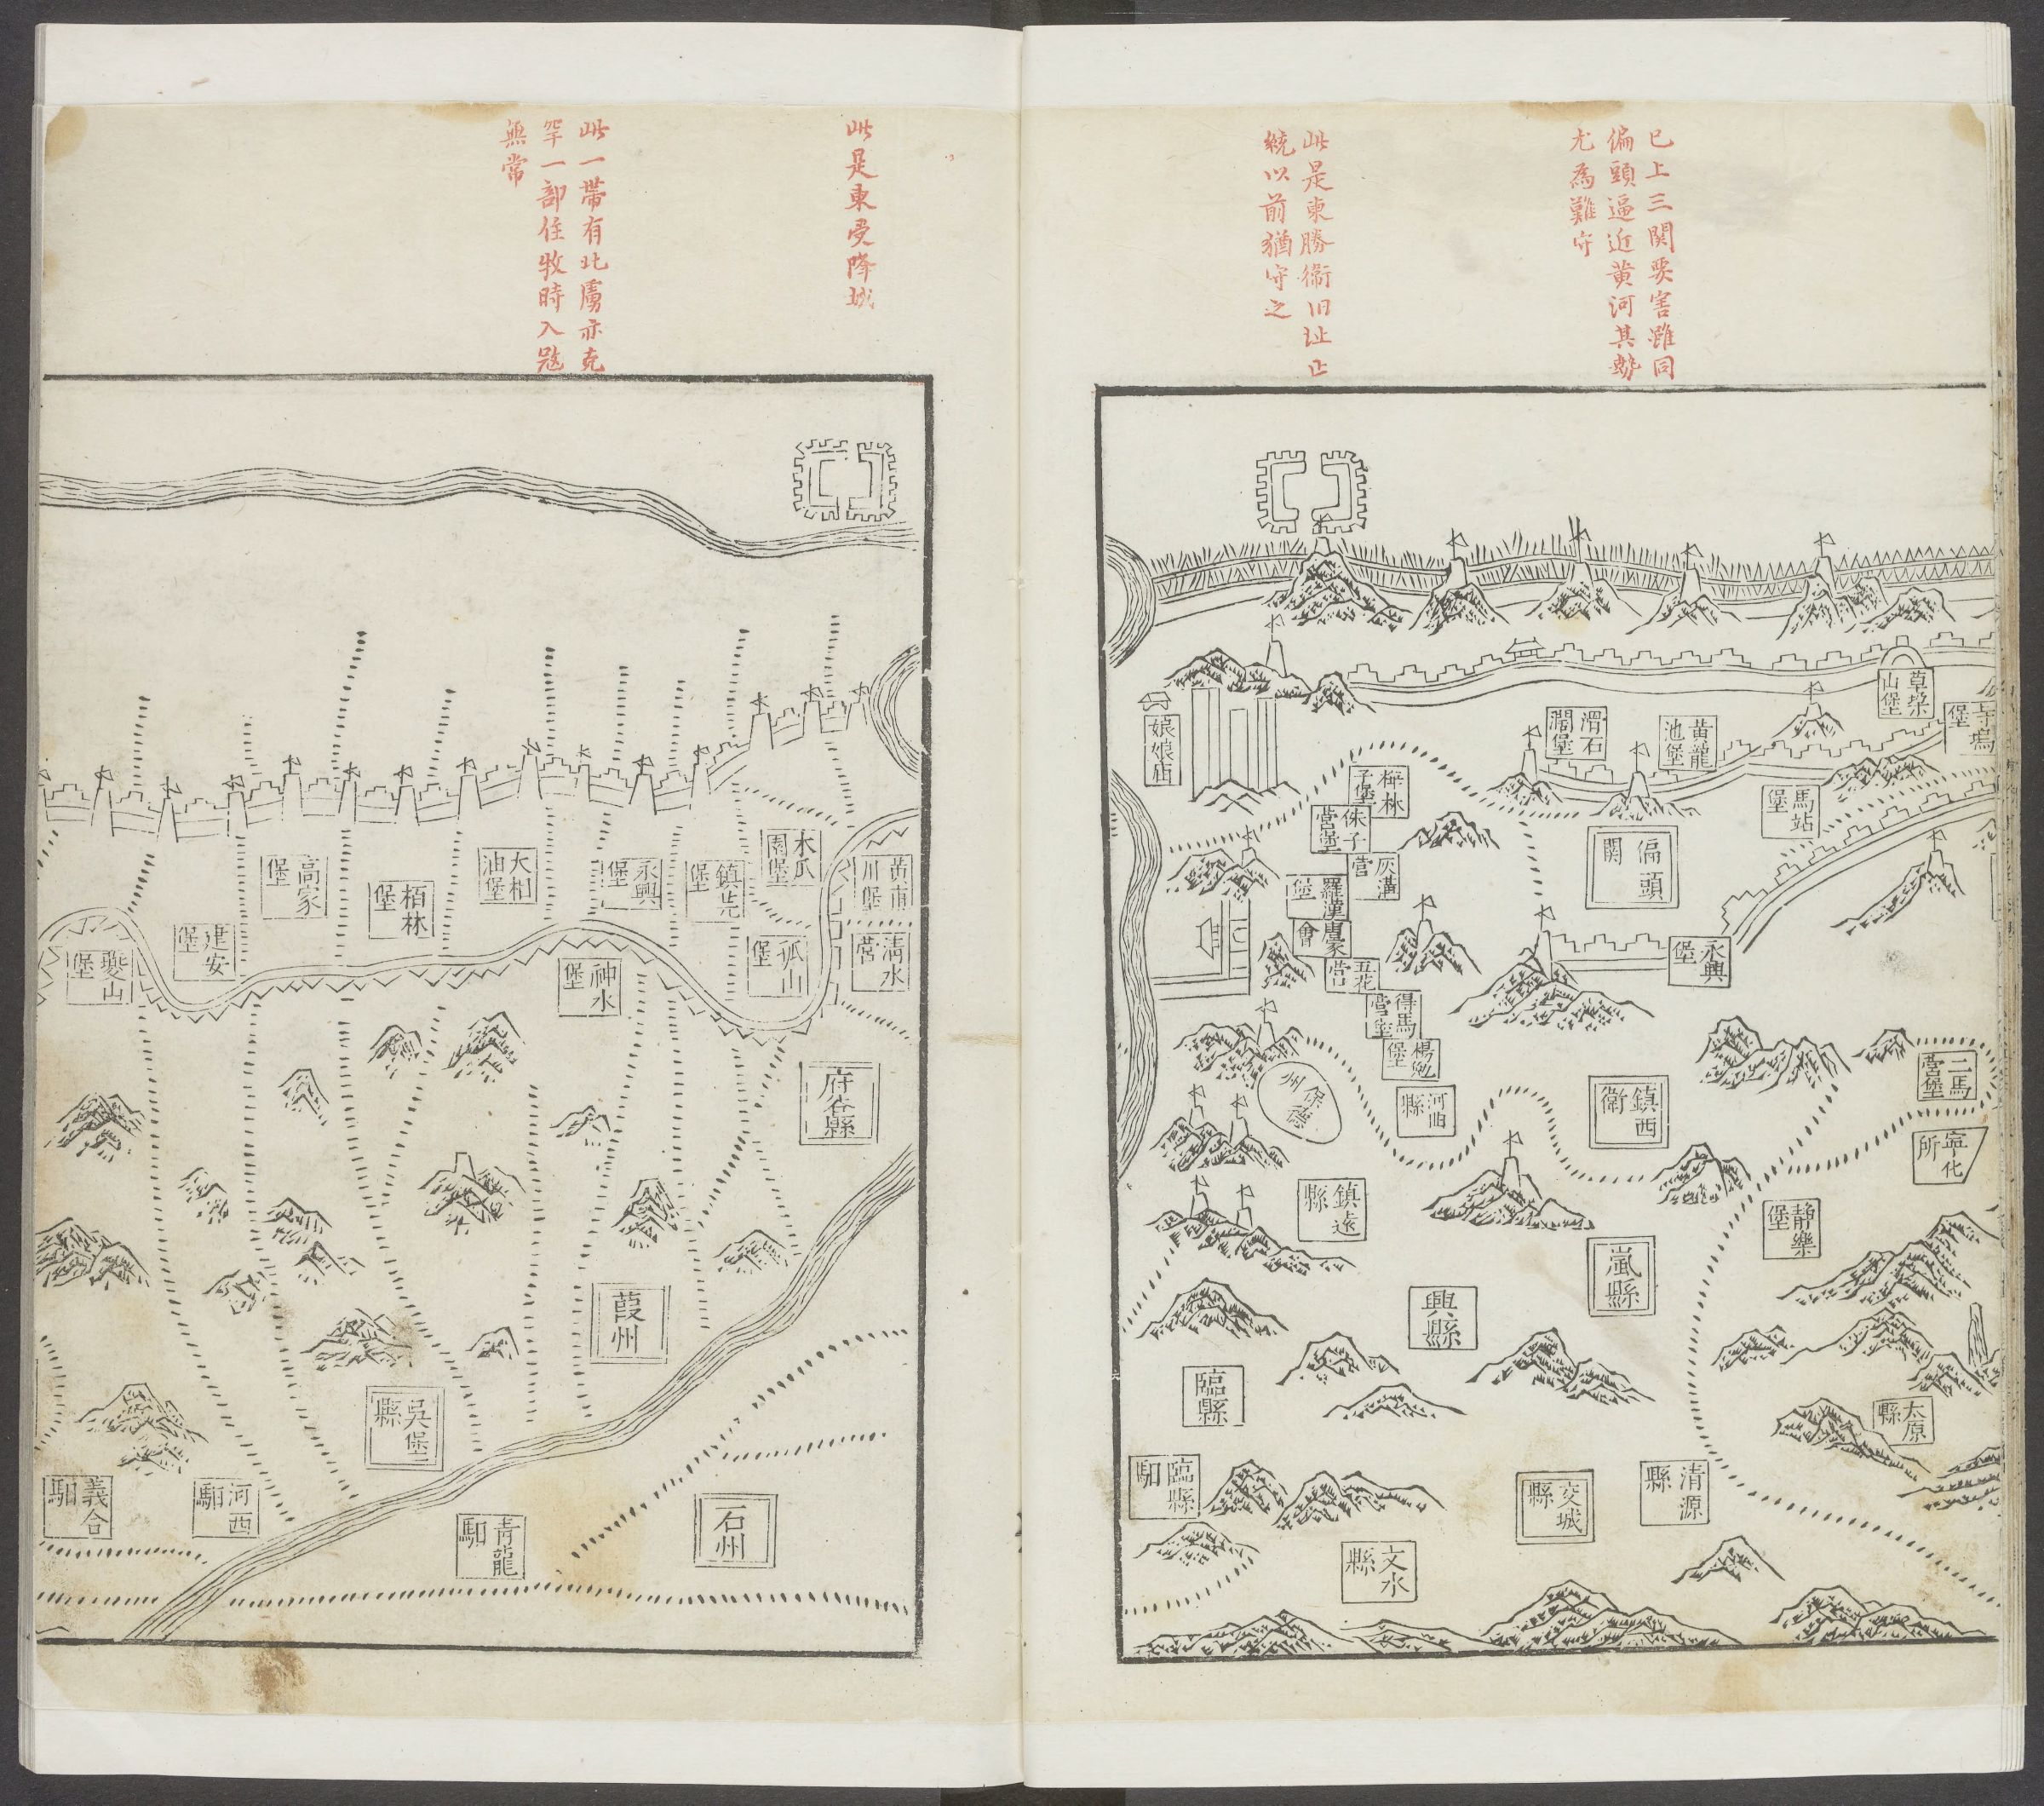 已上三関要害雖同
偏頭逼近黄河其勢
尤為難守
此是東勝衞旧址正
統以前猶守之
草垜
山堡
寺塢
堡
黄龍
池堡
滑石
澗堡
馬站
堡
偏頭
関
樺林
子堡
灰溝
營
羅漢
堡
唐家
會
五花
營
得馬
營堡
楊勉
堡
娘娘
庙
永興
堡
河曲
縣
保德
州
鎮西
衛
二馬
營堡
寧化
所
静樂
堡
鎮遠
縣
嵐縣
興縣
臨縣
太原
縣
清源
縣
交城
縣
文水
縣
臨縣
馹
此是東受降城
此一帯有北虜亦克
罕一部住牧時入冦
無常
黄甫
川堡
清水
營
木瓜
園堡
孤山
堡
鎮羌
堡
永興
堡
神水
堡
大栢
油堡
栢林
堡
高家
堡
建安
堡
䨇山
堡
府谷縣
葭州
吳堡
縣
石州
青龍
馹
河西
馹
義合
馹